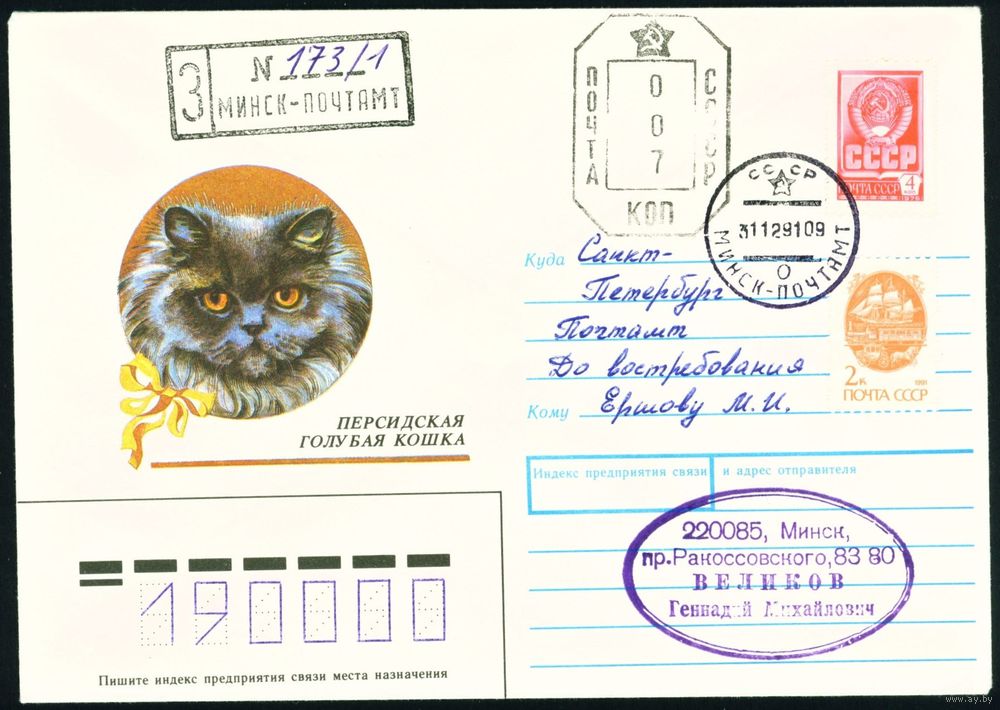 З
N 173/1
МИНСК-ПОЧТАМТ
ПОЧТА
СССР
0
0
7
КОП
СССР
ПОЧТА СССР 4
КОП
1976
СССР
31129109
МИНСК-ПОЧТАМТ
0
Куда Санкт-
Петербург
Почтамт
До востребования
Кому Ершову М.И.
2к
1988
ПОЧТА СССР
ПЕРСИДСКАЯ
ГОЛУБАЯ КОШКА
Индекс предприятия связи и адрес отправителя
220085, Минск,
пр.Ракоссовского,83 80
ВЕЛИКОВ
Геннадий Михайлович
190000
Пишите индекс предприятия связи места назначения
www.ay.by